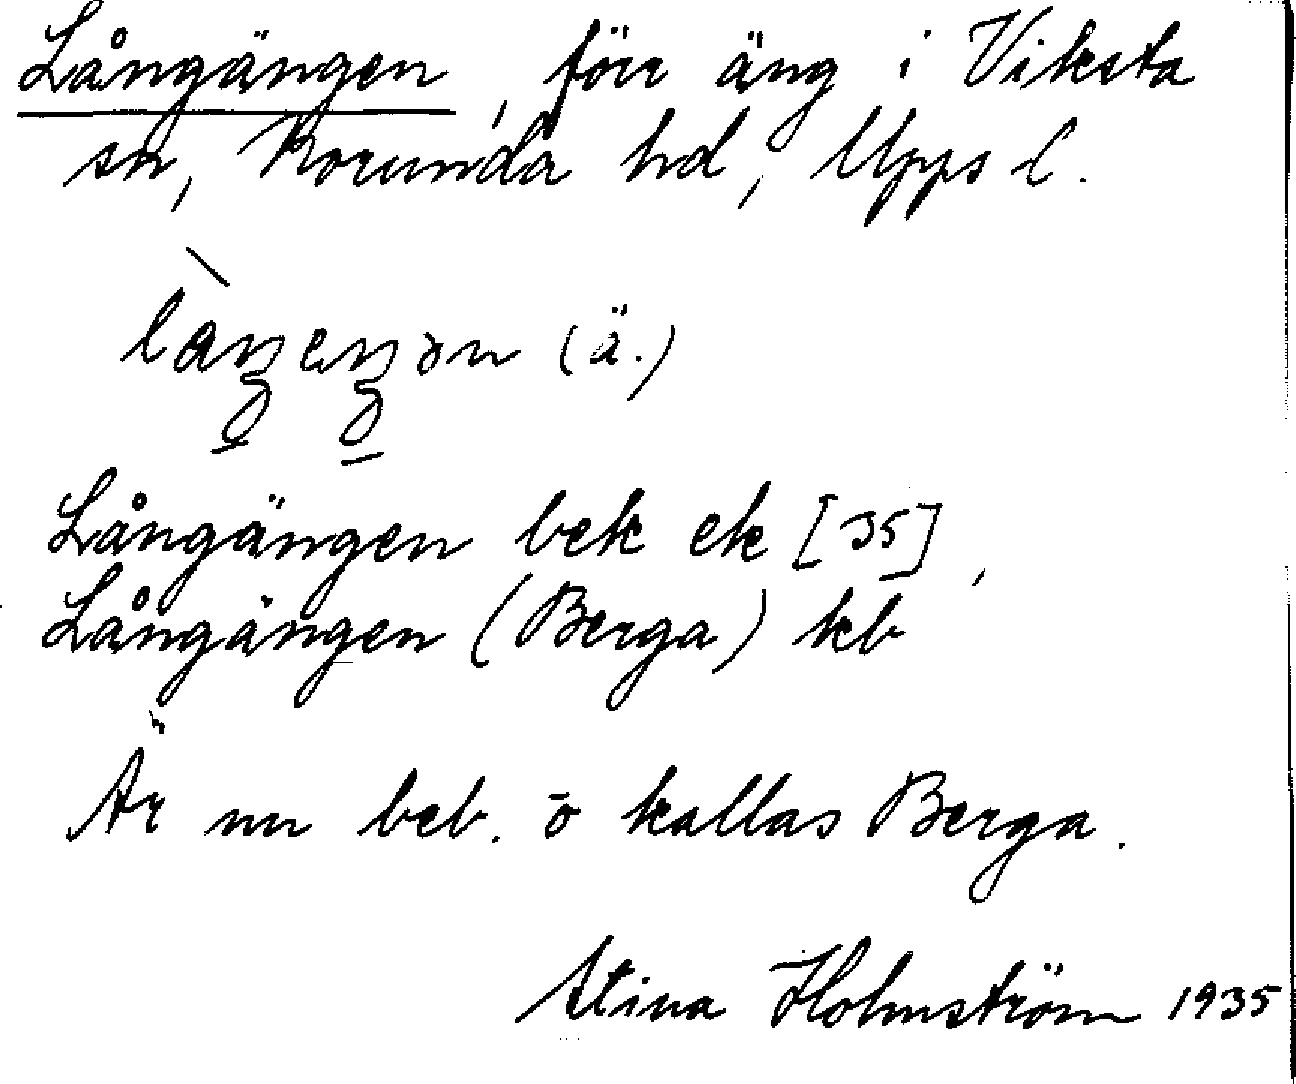 Långängen, förr äng i Viksta
sn, Norunda hd, Upps l.
(ä.)
Långängen bek ek [35],
Långängen (Berga) kb
Är nu beb. o kallas Berga.
Stina Holmström 1935